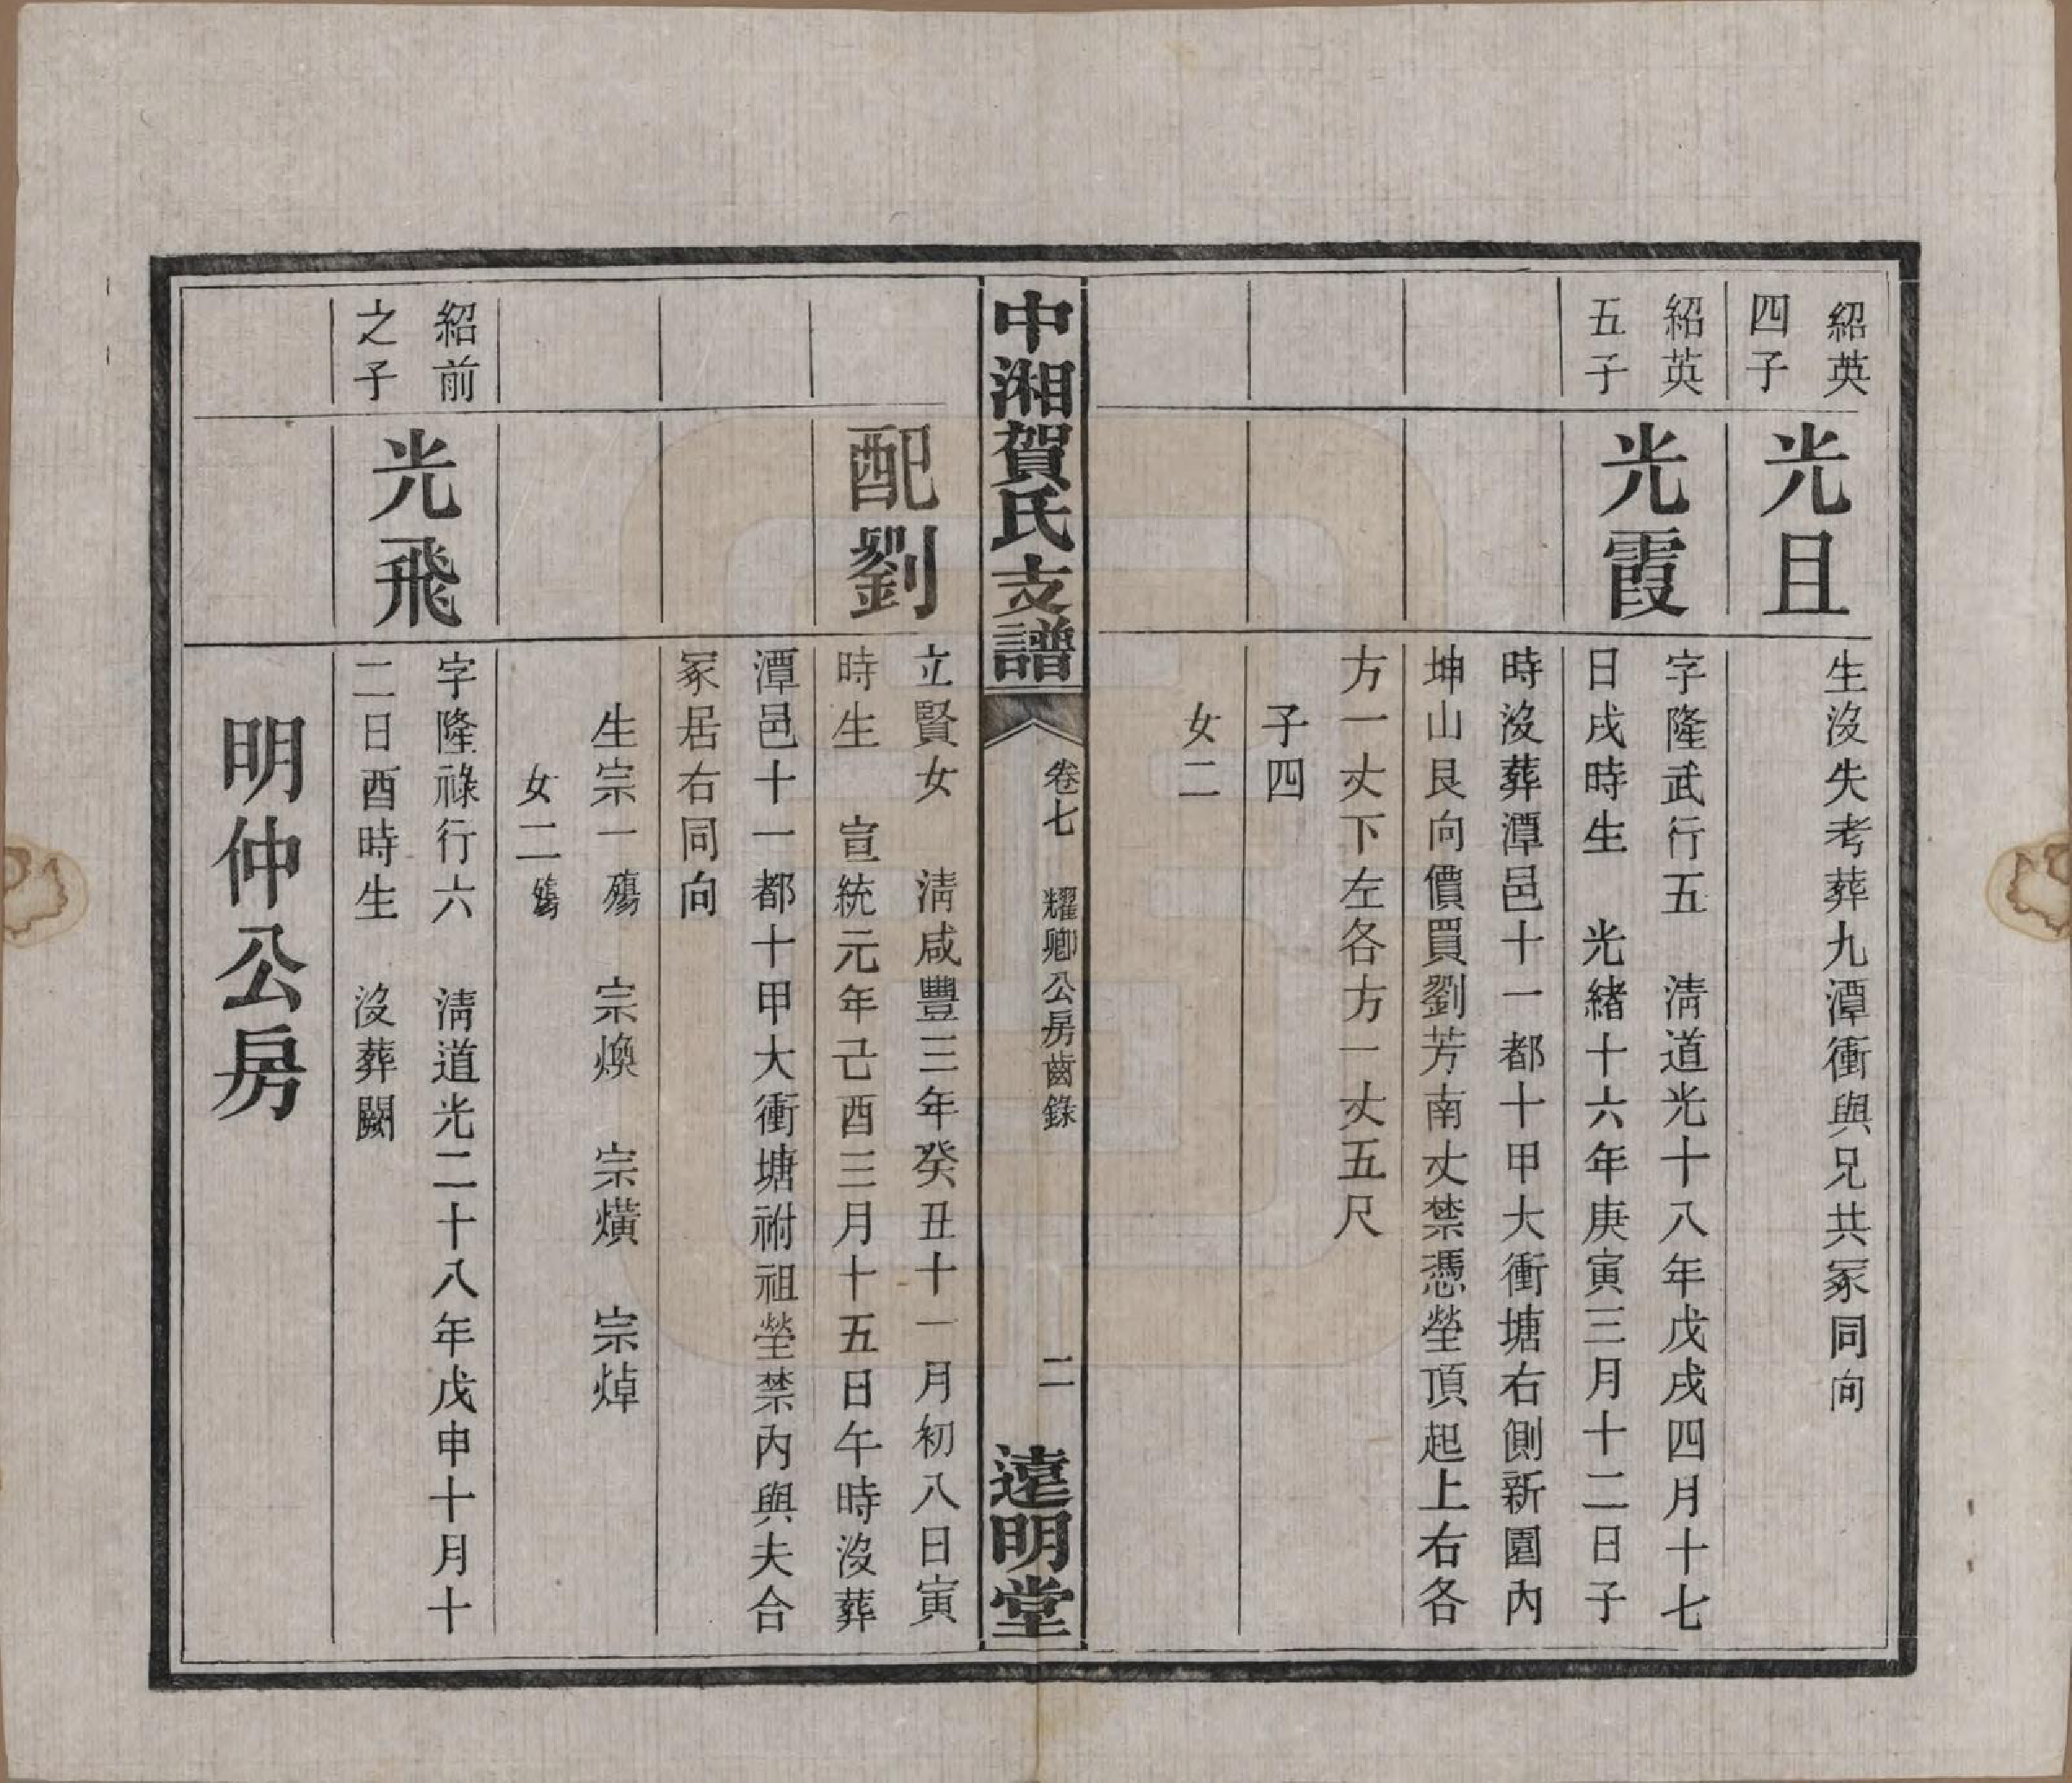 紹英
四子
光且
生沒失考葬九潭衝與兄共冢同向
紹英
五子
光霞
字隆武行五　清道光十八年戊戌四月十七
日戌時生　光緒十六年庚寅三月十二日子
時沒葬潭邑十一都十甲大衝塘右側新園內
坤山艮向價買劉芳南丈禁憑塋頂起上右各
方一丈下左各方一丈五尺
子四
女二
中湘賀氏支譜
卷七　耀卿公房齒錄
二
遠明堂
配劉
立賢女　清咸豐三年癸丑十一月初八日寅
時生　宣統元年己酉三月十五日午時沒葬
潭邑十一都十甲大衝塘祔祖塋禁內與夫合
冢居右同向
生宗一殤　宗煥　宗熿　宗焯
女二殤
紹前
之子
光飛
字隆祿行六　清道光二十八年戊申十月十
二日酉時生　沒葬闕
明仲公房